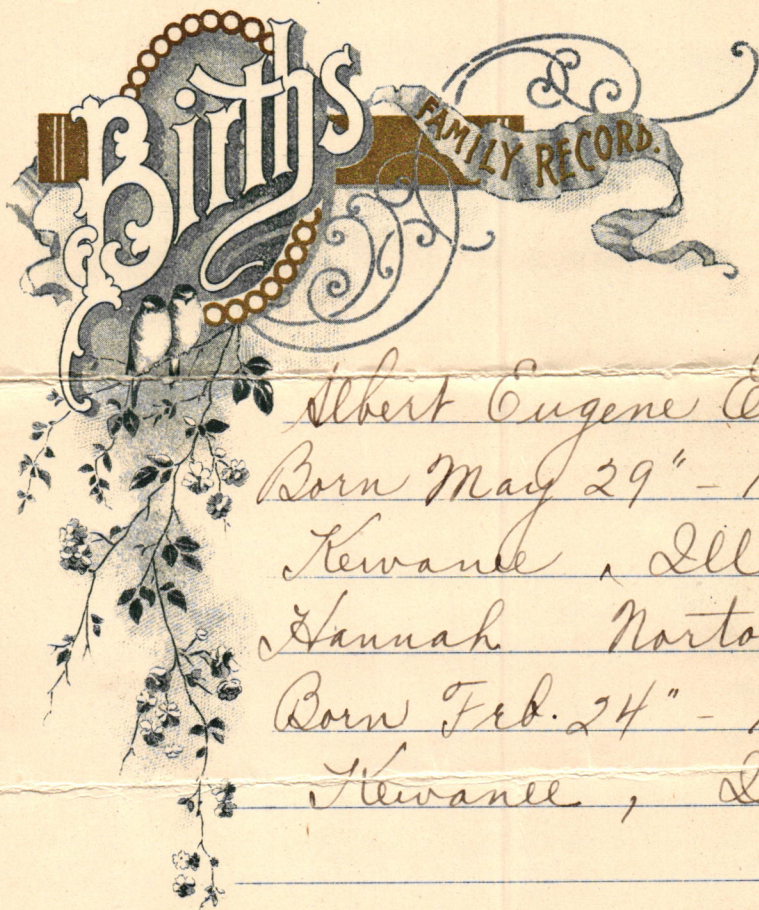 Births
FAMILY RECORD.
Albert Eugene E
Born May 29" - 1
Kewanee, Ill
Hannah Norto
Born Feb. 24" - 1
Kewanee, I